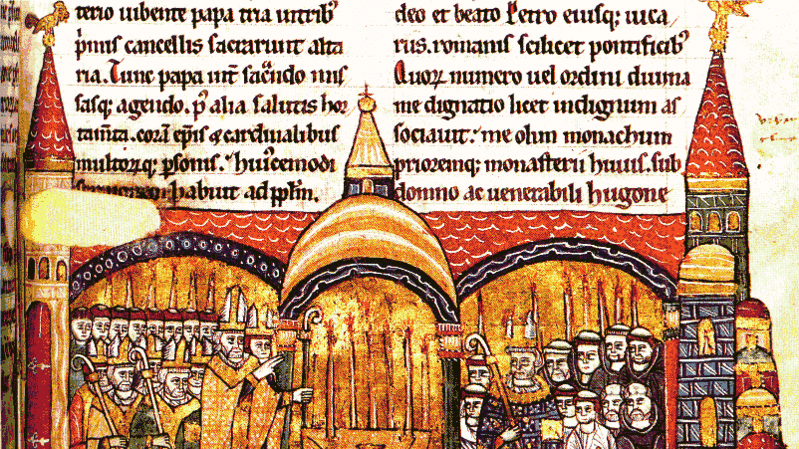 terio uibente papa tria uitrib9
pmis cancellis sacrarunt alta
ria. Tunc papa int sacdo mis
sasq; agendo. p9 alia salutis hor
tamta. cora epis & cardinalibus
multorq; psonis. hui9cemodi
habuit ad pplm.
deo et beato Petro eiusq; uica
riis. romanis scilicet pontificib9
Quoꝝ numero uel ordini diuina
me dignatio licet indignum as
sociauit. me olim monachum
prioremq; monasterii huius. sub
domno ac uenerabili hugone